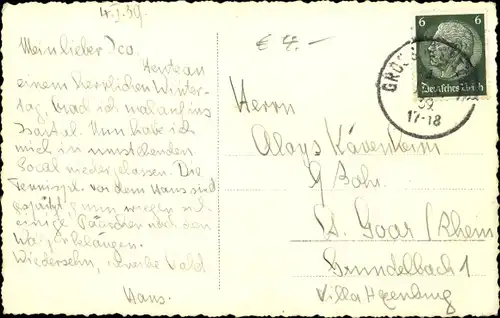 4.1.39.
Mein lieber Ico.
Heute an
einem herrlichen Winter-
tag, brach ich mal auf ins
Isartal. Nun habe ich
mich in umstehenden
Local niedergelassen. Die
vor dem Haus sind
gespritzt, nun wiegen sich
einige Pärchen nach den
Walzerklängen.
Wiedersehn, schreibe bald
Hans.
€ 4.-
6 6
Deutsches Reich
39
17-18
Herrn
Aloys
b/ Bohn.
St. Goar / Rhein
Gründelbach 1
Villa